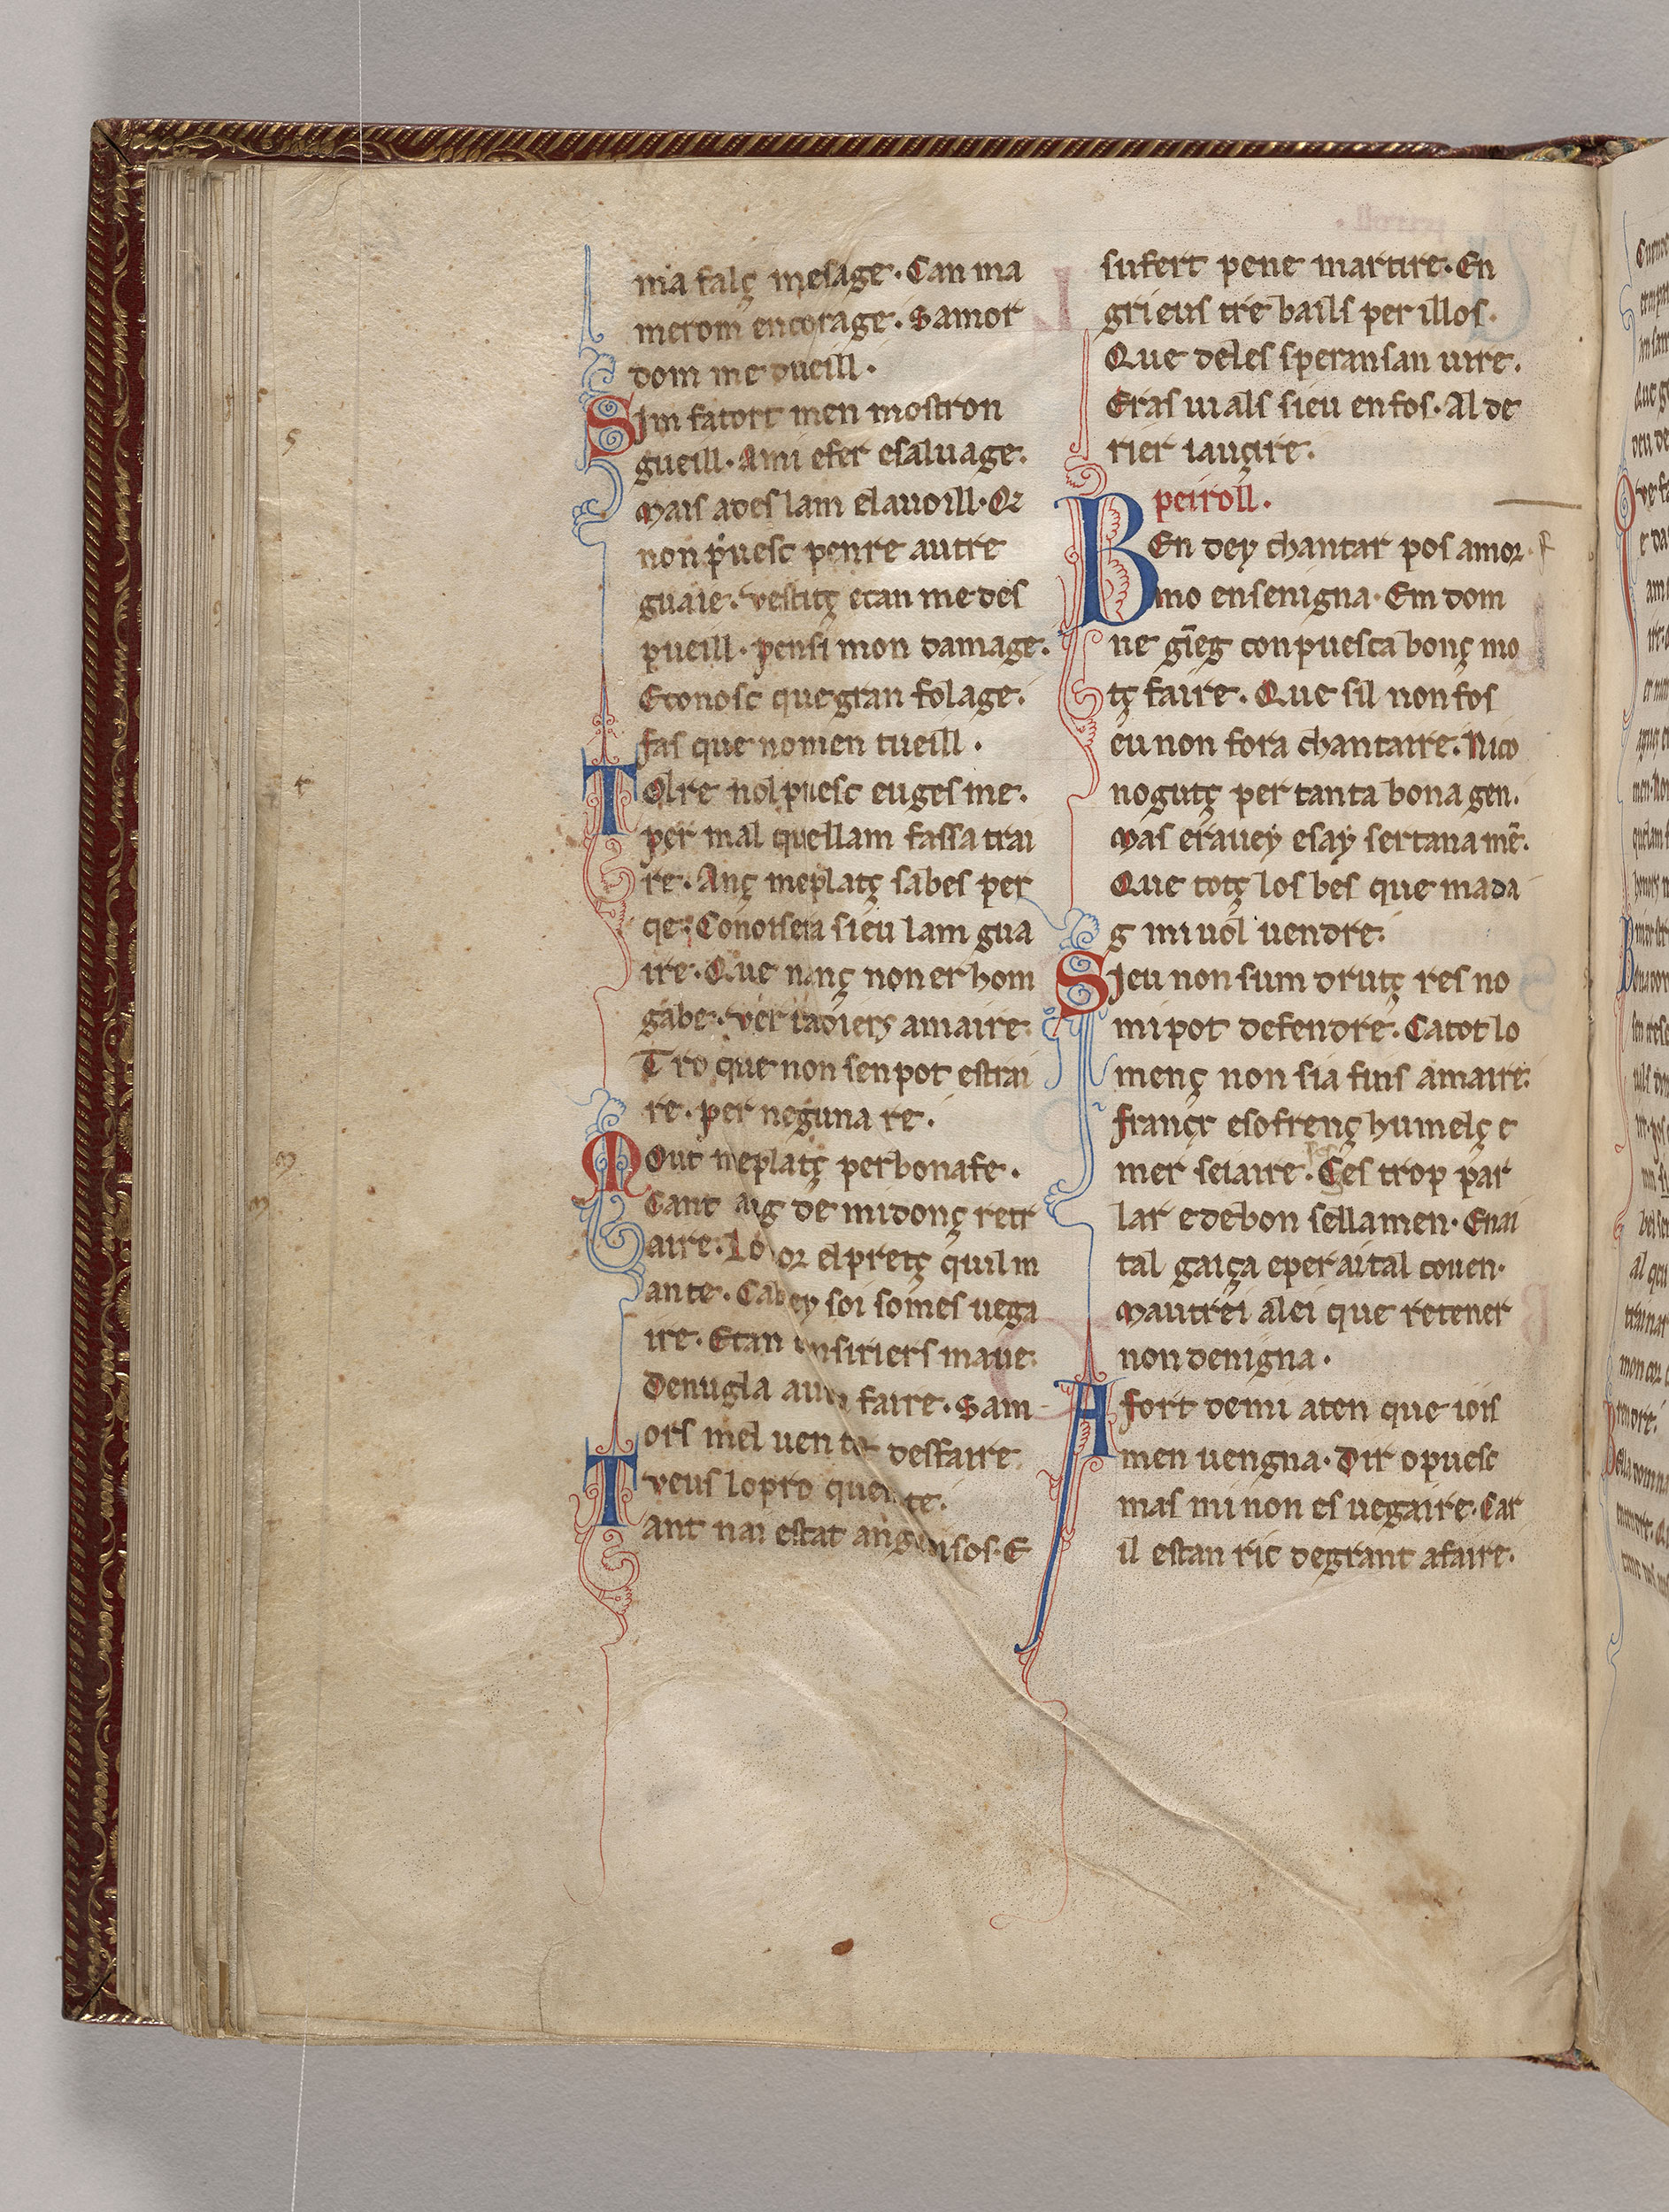 mia falç mesage. Can ma
merom encorage. Samor
dom me dueill.
Sim fatort men mostron
gueill. Ami efer esaluage.
Mais ades lam elauoill. Or
non puesc penre autre
guaie. vestitç etan me des
pueill. pensi mon damage.
Econosc que gran folage.
fas que nomen tueill.
Tolre nol puesc eu ges me.
per mal quellam fassa trai
re. Anç me platç sabes per
qe. Conoisera sieu lam gua
ire. Que nanç non er hom
gabe. ver amaire.
Tro que non sen pot estrai
re. per neguna re.
Mout me platç per bona fe.
Cant aug de midonç retr
aire. Lo or el pretç quil m
ante. Cab ey soi somes uega
ire. Etan siriers maue.
Denugla faire. Sam
ors mel uen desfaire
veus lo pro que te.
Tant nai estat angoisos. E
sufert pene martire. En
grieus tre bails per illos.
Que deles speransan uire.
Eras uials sieu en fos. Al de
rier iauçire.
peiroll.
Ben dey chantar pos amor
mo ensenigna. Em dom
ne gieg con puesca bonç mo
tç faire. Que sil non fos
eu non fora chantaire. Nico
nogutç per tanta bona gen.
Mas erauey esay sertana mẽ.
Que totç los bes que mada
g mi uol uendre.
Sieu non sum drutç res no
mi pot defendre. Catot lo
menç non sia fins amaire.
francr esofrenç humelç e
mer seiaire. Ces trop par
lar e de bon sellamen. Enai
tal gaiça eper aital couen.
Mautrei alei que retener
non denigna.
A fort demi aten que iois
men uengna. Dir o puesc
mas mi non es uegaire. Car
il es tan ric de grant afaire.